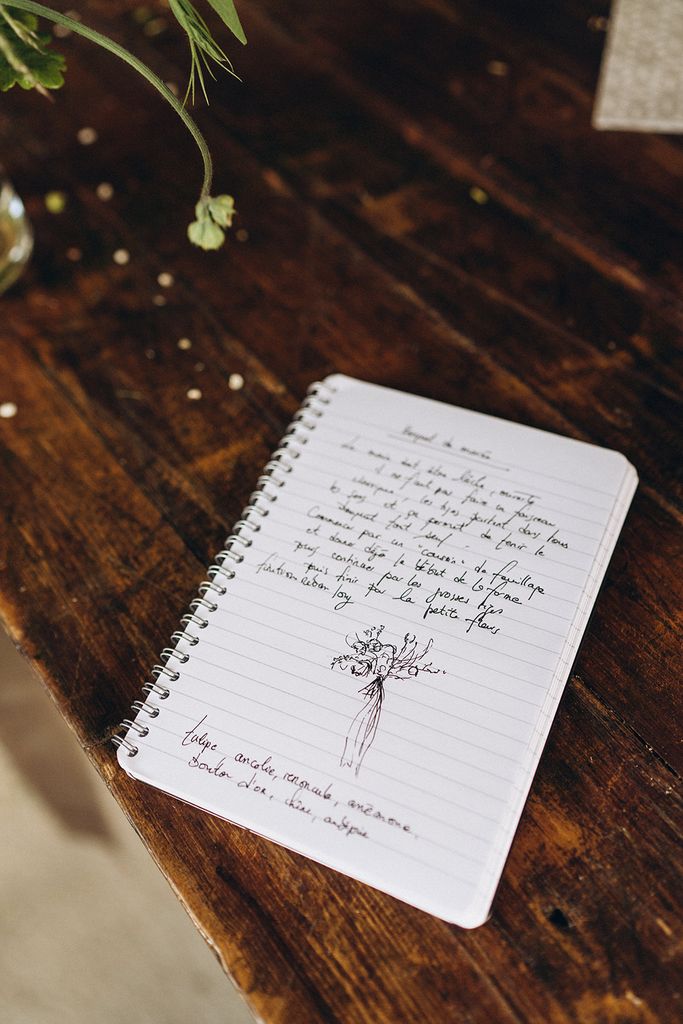 Bouquet de mariée
La main doit être lâche, ouverte
il ne faut pas faire un faisceau
les tiges partent dans tous
les sens et ça permet de tenir le
bouquet tout seul.
Commencer par un "coussin" de feuillage
et donner déjà le début de la forme
puis continuer par les grosses tiges
puis finir par la petite fleurs
finition ruban long
tulipe, ancolie, renoncule, anémone,
Bouton d'or, chêne,